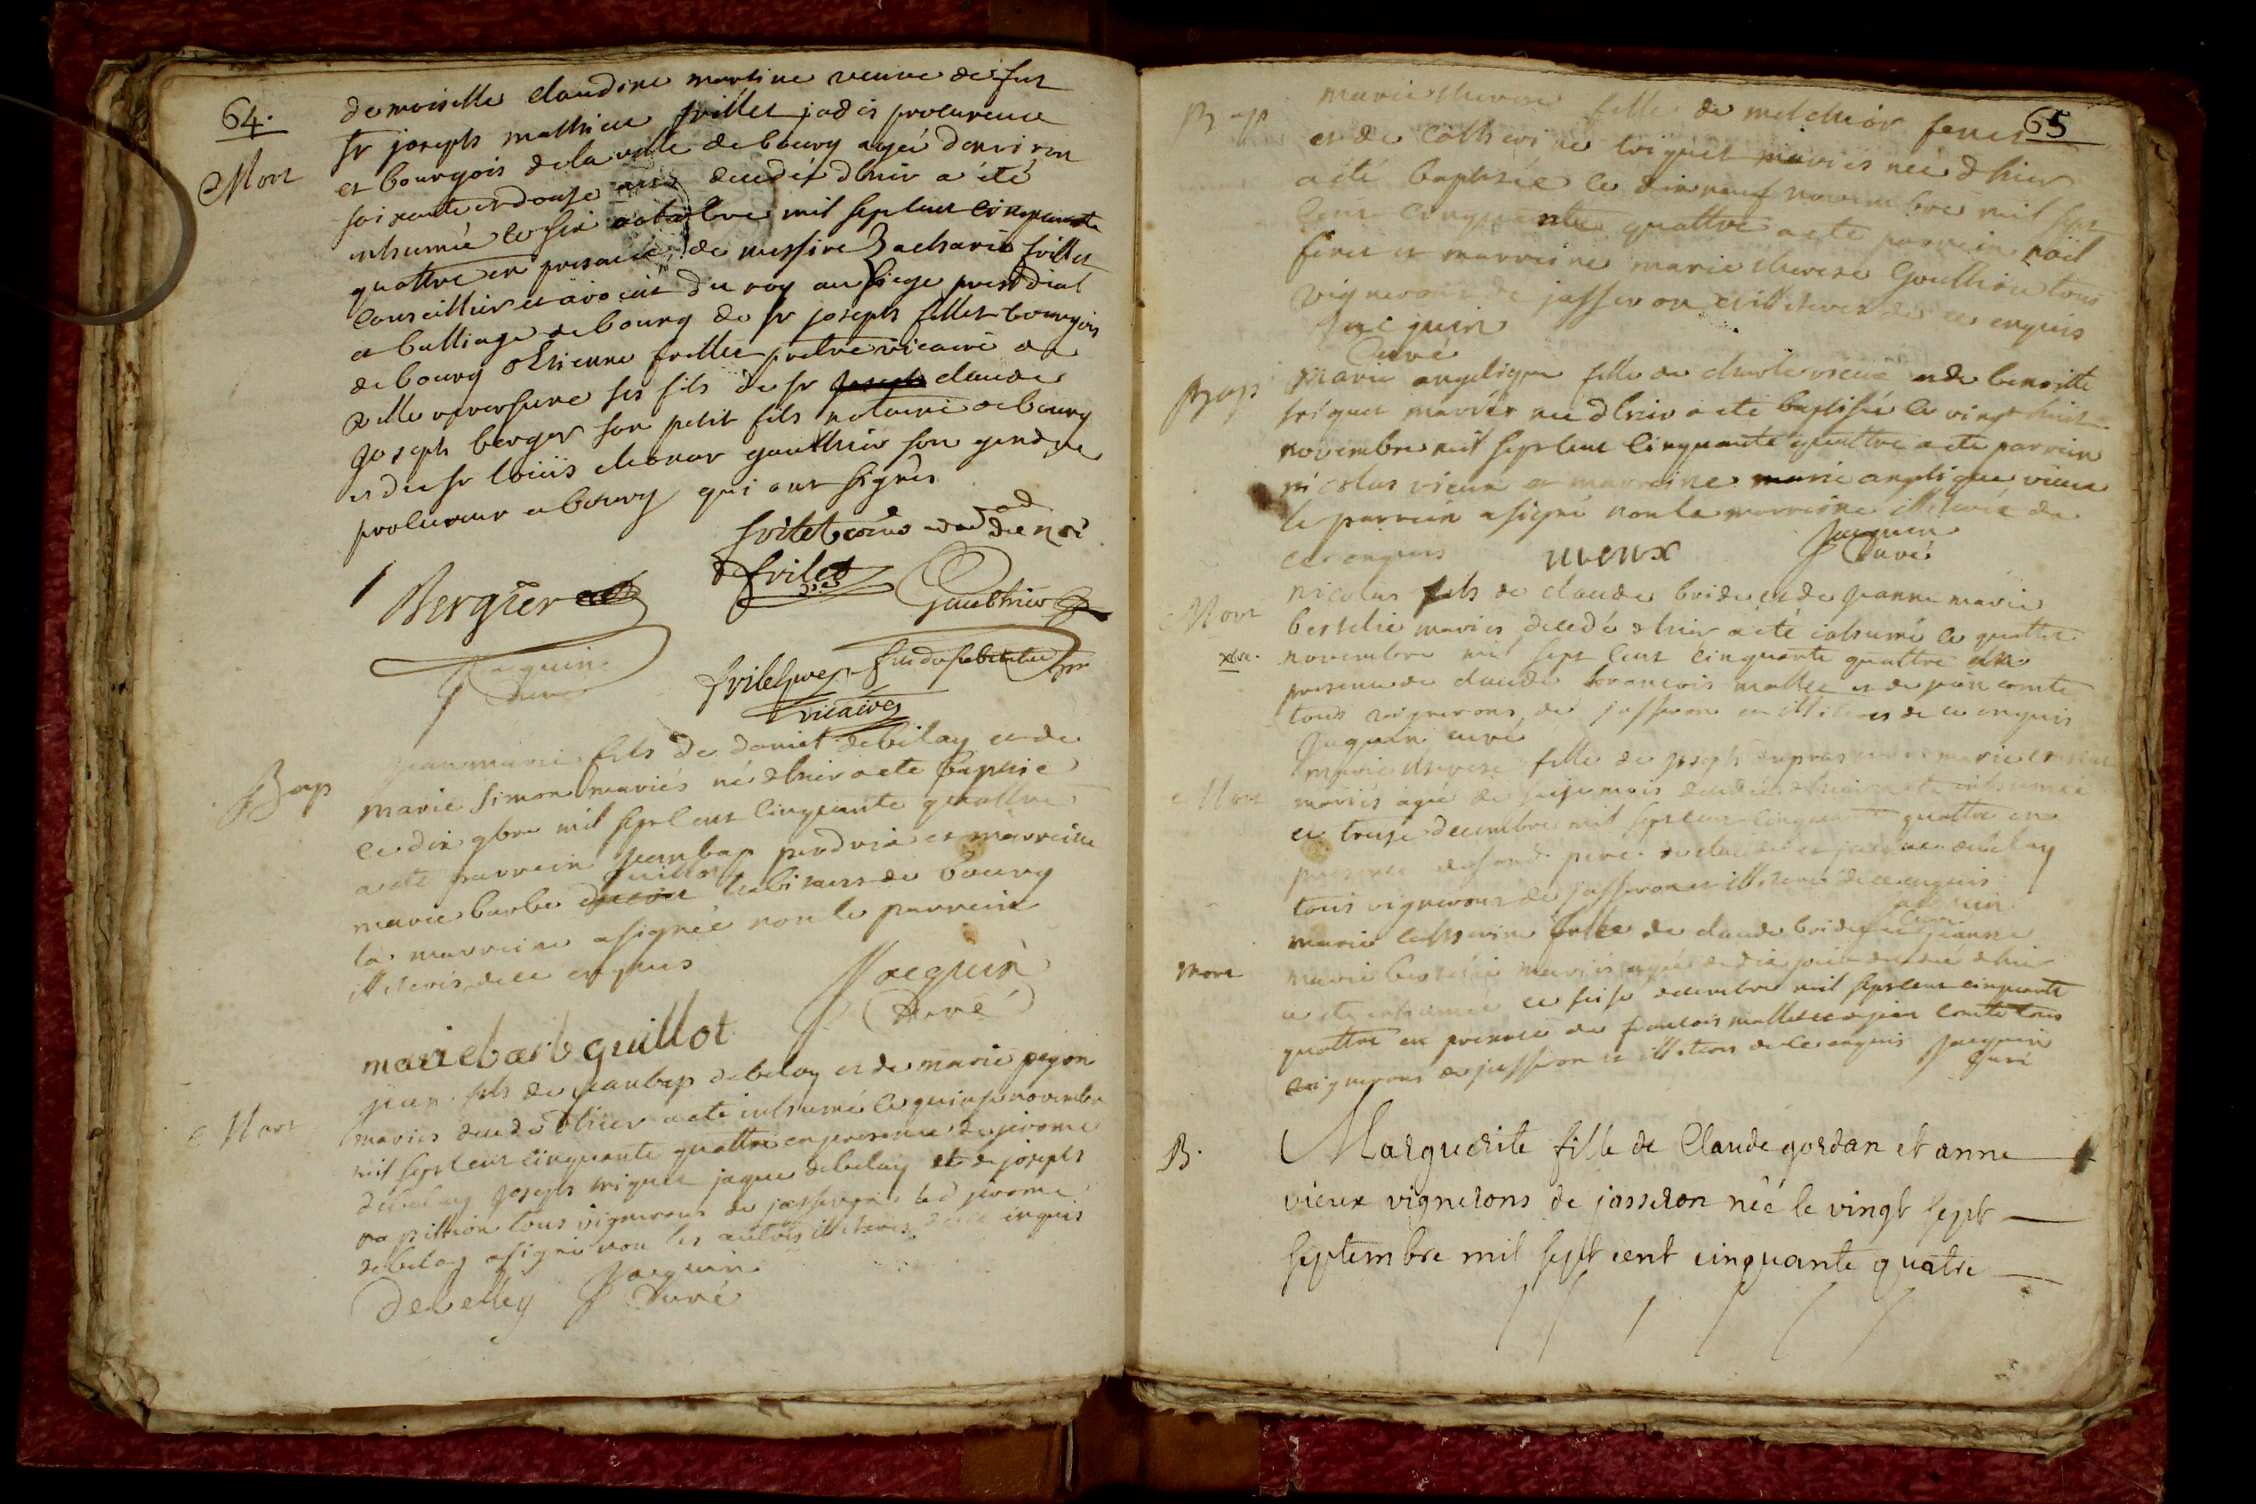 64.
Mort
demoiselle claudine martine veuve de fut
sr joseph mathieu frillet jadis procureur
et bourgois de la ville de bourg agée denviron
soixante et douse ans decedéé dhier a été
inhumée le six octobre mil sept cent cinquante
quattre en presence de messire Zacharie frillet
conseillier et avocat du roy au siege presidial
et balliage de bourg de sr joseph fillet bourgois
de bourg etienne frillet pretre vicaire de
ses fils de sr joseph claude
joseph berger son petit fils notaire a bourg
et du sr louis gauthier son gendre
procureur a bourg qui ont signés
ad
du roi
Bergier
frilet
Gauthier
Jacquin
curé
frilet
vicaire
Bap
jean marie fils de daniel debilay et de
marie simon mariés né dhier a eté baptisé
ce dix 9bre mil sept cent cinquante quattre
a eté parrein jeanbap perdrix et marreine
guillot
marie barbe habitans de bourg
la marreine a signée non le parrein
illiteris de ce enquis
Jacquin
Curé
marie barb guillot
Mort
jean fils de jeanbap debelay et de marie pegon
mariés decedé dhier a eté inhumé le quinse novembre
mil sept cent cinquante quattre en presence de jerome
debelay joseph jaque debelay et de joseph
tous vignerons de jasseron led jerome
debelay a signé non les autres illiteres de ce enquis
Debelley
Jacquin
Curé
65
Bap
marie therese fille de melchior feret
et de catherine mariés née dhier
a été baptisée le dix neuf novembre mil sept
cent cinquante quattre a eté parrein noel
feret et marreine marie therese Gouthier tous
vignerons de jasseron et illiteres de ce enquis
Jacquin
Curé
Bap
Marie angelique fille de charle vieux et de benoitte
mariés née dhier a eté baptisée le vingt huit
novembre mil sept cent cinquante quattre a eté parrein
nicolas vieux et marreine marie angelique vieux
le parrein a signé non la marreine illiterée de
ce enquis
vieux
Jacquin
Curé
Mort
xbre.
nicolas fils de claude bride et de jeanne marie
mariés decedé dhier a été inhumé le quattre
novembre mil sept cent cinquante quattre en
presence de claude francois mallet et de jean comte
tous vignerons de jasseron et illiteres de ce enquis
Jacquin curé
Mort
marie therese fille de joseph dupras et de marie
mariés agée de seise mois decedée dhier a eté inhumée
ce treise decembre mil sept cent cinquante quattre en
presence de son pere de debelay
tous vignerons de jasseron et illiteres de ce enquis
Jacquin
Curé
mort
marie catherine fille de claude bride et de jeanne
marie mariés agée de dix jours decedée dhier
a eté inhumée ce seise decembre mil sept cent cinquante
quattre en presence de francois mallet et de jean comte tous
vignerons de jasseron et illiteres de ce enquis
Jacquin
Curé
B.
Marguerite fille de Claude gordan et anne
vieux vignerons de jasseron née le vingt sept
septembre mil sept cent cinquante quatre